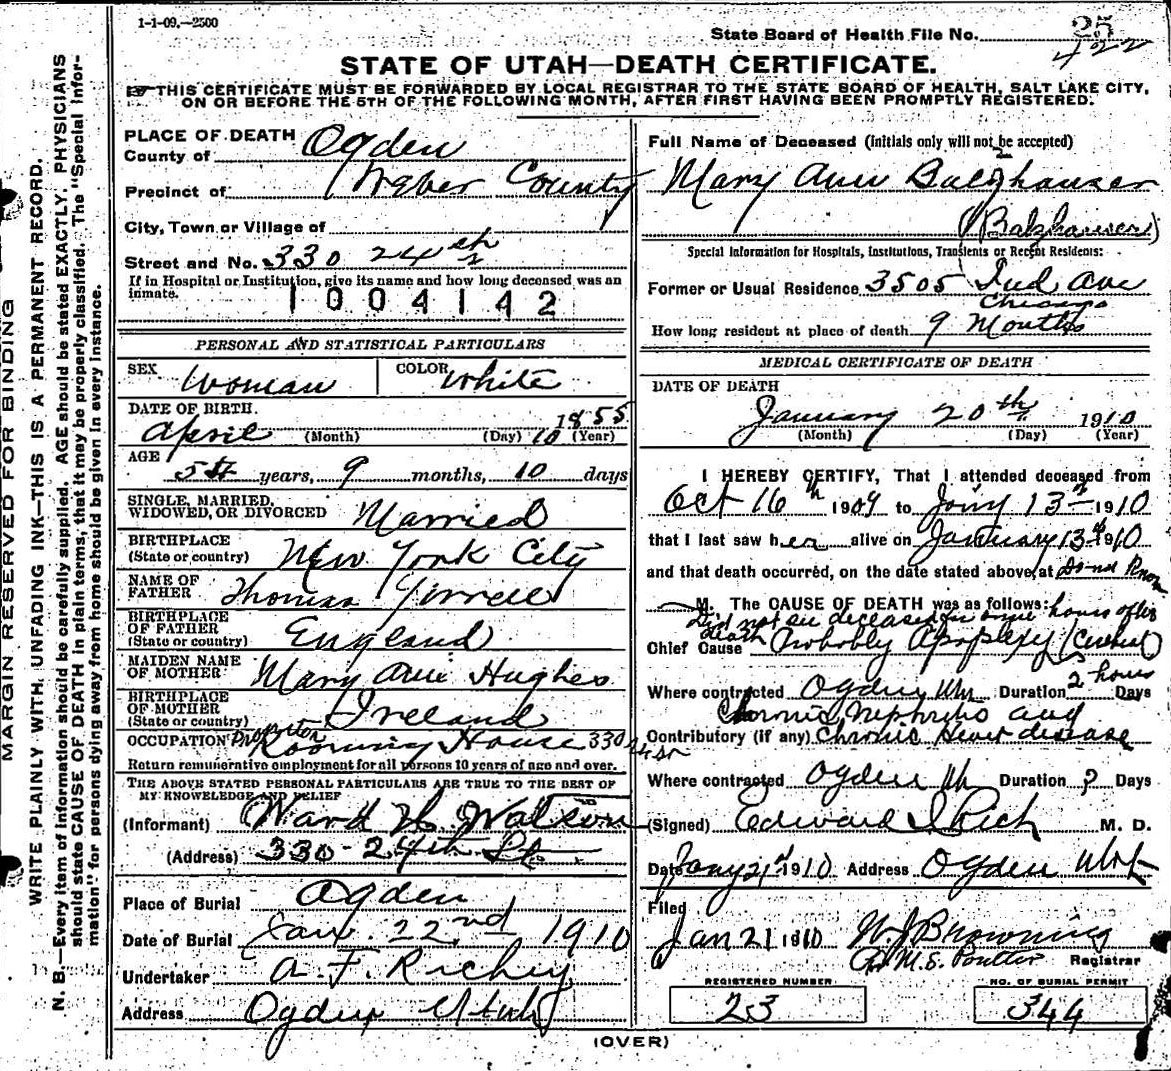 1-1-09.—2500
State Board of Health File No. 25
422
STATE OF UTAH—DEATH CERTIFICATE.
THIS CERTIFICATE MUST BE FORWARDED BY LOCAL REGISTRAR TO THE STATE BOARD OF HEALTH, SALT LAKE CITY,
ON OR BEFORE THE 5TH OF THE FOLLOWING MONTH, AFTER FIRST HAVING BEEN PROMPTLY REGISTERED.
MARGIN RESERVED FOR BINDING
WRITE PLAINLY WITH UNFADING INK—THIS IS A PERMANENT RECORD.
N. B.—Every item of information should be carefully supplied. AGE should be stated EXACTLY, PHYSICIANS
should state CAUSE OF DEATH in plain terms, that it may be properly classified. The "Special Infor-
mation" for persons dying away from home should be given in every instance.
PLACE OF DEATH
County of Ogden
Precinct of Weber County
City, Town or Village of
Street and No. 330 24th
If in Hospital or Institution, give its name and how long deceased was an
inmate.
1004142
PERSONAL AND STATISTICAL PARTICULARS
SEX Woman COLOR White
DATE OF BIRTH.
April (Month) (Day) 10 1855 (Year)
AGE
54 years, 9 months, 10 days
SINGLE, MARRIED,
WIDOWED, OR DIVORCED Married
BIRTHPLACE
(State or country) New York City
NAME OF
FATHER Thomas
BIRTHPLACE
OF FATHER
(State or country) England
MAIDEN NAME
OF MOTHER Mary Ann Hughes
BIRTHPLACE
OF MOTHER
(State or country) Ireland
OCCUPATION Proprietor Rooming House 330 24 St
Return remunerative employment for all persons 10 years of age and over.
THE ABOVE STATED PERSONAL PARTICULARS ARE TRUE TO THE BEST OF
MY KNOWLEDGE AND BELIEF
(Informant) Ward H. Watson
(Address) 330-24th St
Place of Burial Ogden
Date of Burial Jan. 22nd 1910
Undertaker A. F. Richey
Address Ogden Utah
Full Name of Deceased (Initials only will not be accepted)
Mary Ann Balzhauser
(Balzhauser)
Special Information for Hospitals, Institutions, Transients or Recent Residents:
Former or Usual Residence 3505 Ind Ave
Chicago
How long resident at place of death 9 Months
MEDICAL CERTIFICATE OF DEATH
DATE OF DEATH
January 20th 1910
(Month) (Day) (Year)
I HEREBY CERTIFY, That I attended deceased from
Oct 16th 1909 to Jany 13th 1910
that I last saw her alive on January 13th 1910
and that death occurred, on the date stated above, at Do not Know
M. The CAUSE OF DEATH was as follows:
Did not see deceased for some hours after
death
Chief Cause Probably Apoplexy (Cerebral)
Where contracted Ogden Utah Duration 2 hours Days
Chronic Nephritis and
Contributory (if any) Chronic Liver disease
Where contracted Ogden Ut Duration ? Days
(Signed) Edward I Rich M. D.
Date Jany 21st 1910 Address Ogden Utah
Filed
Jan 21 1910 W. J Browning
M. S. Poulter Registrar
REGISTERED NUMBER
23
NO. OF BURIAL PERMIT
344
(OVER)